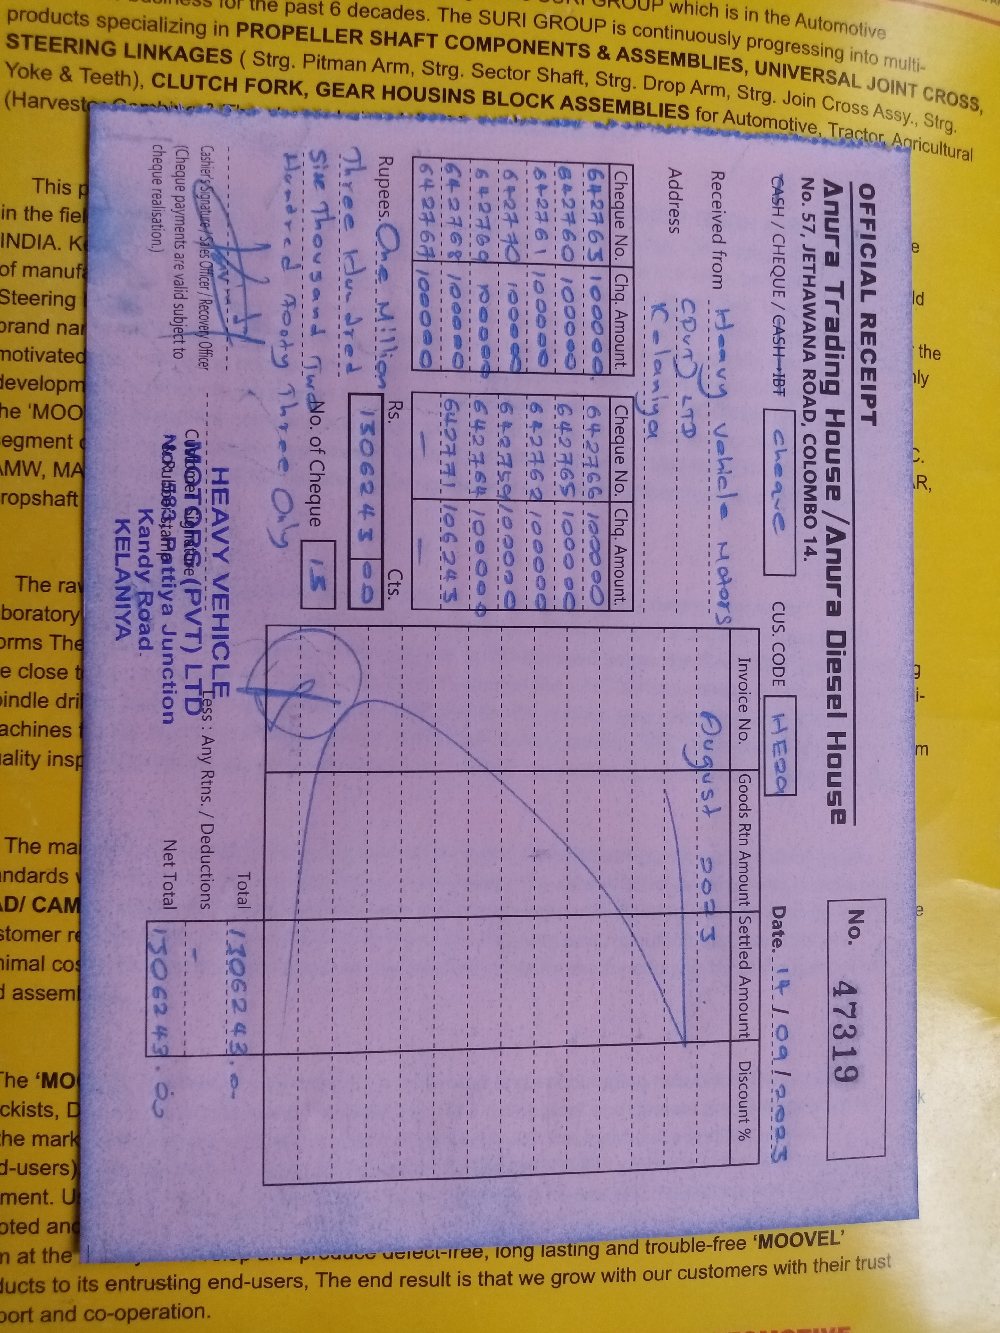 the past 6 decades. The SURI GROUP is continuously progressing into multi-
GROUP which is in the Automotive
products specializing in PROPELLER SHAFT COMPONENTS & ASSEMBLIES, UNIVERSAL JOINT CROSS,
STEERING LINKAGES ( Strg. Pitman Arm, Strg. Sector Shaft, Strg. Drop Arm, Strg. Join Cross Assy., Strg.
Yoke & Teeth), CLUTCH FORK, GEAR HOUSINS BLOCK ASSEMBLIES for Automotive, Tractor, Agricultural
OFFICIAL RECEIPT
No. 47319
Anura Trading House /Anura Diesel House
No. 57, JETHAWANA ROAD, COLOMBO 14.
CASH / CHEQUE / CASH-IBT cheque CUS. CODE HE09 Date. 14 / 09 / 2023
Received from Heavy Vehicle Motors
Address (Pvt) LTD
Kelaniya
Cheque No. Chq. Amount. Cheque No. Chq. Amount.
642763 100000. 642766 100000
642760 100000 642765 100000
642761 100000 642762 100000
642770 100000 642759 100000
642769 100000 642764 100000
642768 100000 642771 106243
642767 100000 — —
Rupees. One Million Rs. Cts.
Three Hundred 1306243 00
Six Thousand Two No. of Cheque 13
Hundred Fourty Three Only
Cashier's Signature / Sales Officer / Recovery Officer
(Cheque payments are valid subject to
cheque realisation.)
HEAVY VEHICLE
MOTORS (PVT) LTD
No. 583, Pattiya Junction
Kandy Road
KELANIYA
Invoice No. Goods Rtn Amount Settled Amount Discount %
August 2023
Total 1306243.0
Less : Any Rtns. / Deductions -
Net Total 1306243.00
This p
in the fiel
INDIA. K
of manufa
Steering
brand nar
motivated
developm
he 'MOO
egment
AMW, MA
ropshaft
The ra
boratory
orms The
e close t
indle dril
achines
ality insp
The ma
andards
AD/ CAM
stomer re
nimal cos
d assem
The 'MO
ckists, D
the mark
d-users)
ment. U
oted and
m at the
produce defect-free, long lasting and trouble-free 'MOOVEL'
ducts to its entrusting end-users, The end result is that we grow with our customers with their trust
port and co-operation.